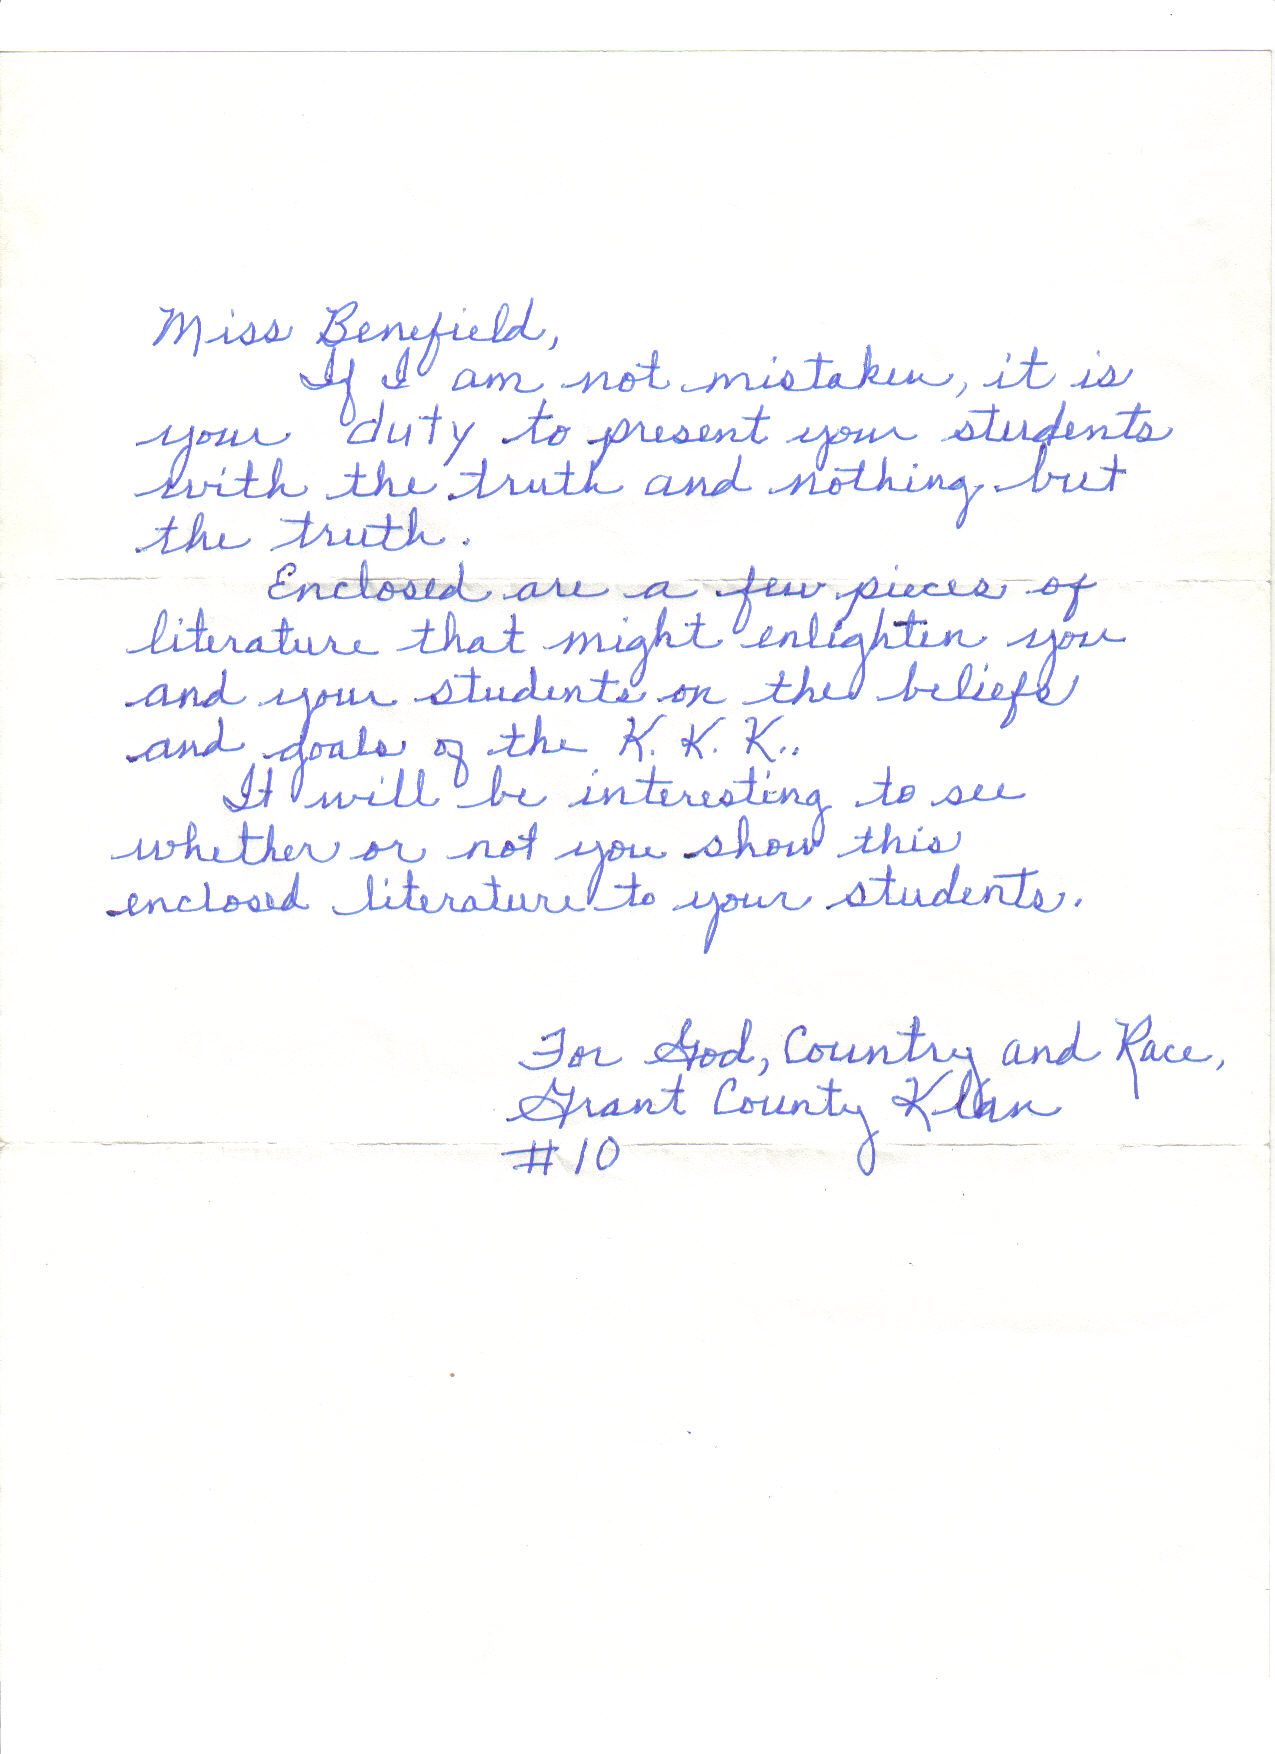 Miss Benefield,
If I am not mistaken, it is
your duty to present your students
with the truth and nothing but
the truth.
Enclosed are a few pieces of
literature that might enlighten you
and your students on the beliefs
and goals of the K. K. K..
It will be interesting to see
whether or not you show this
enclosed literature to your students.
For God, Country and Race,
Grant County Klan
#10